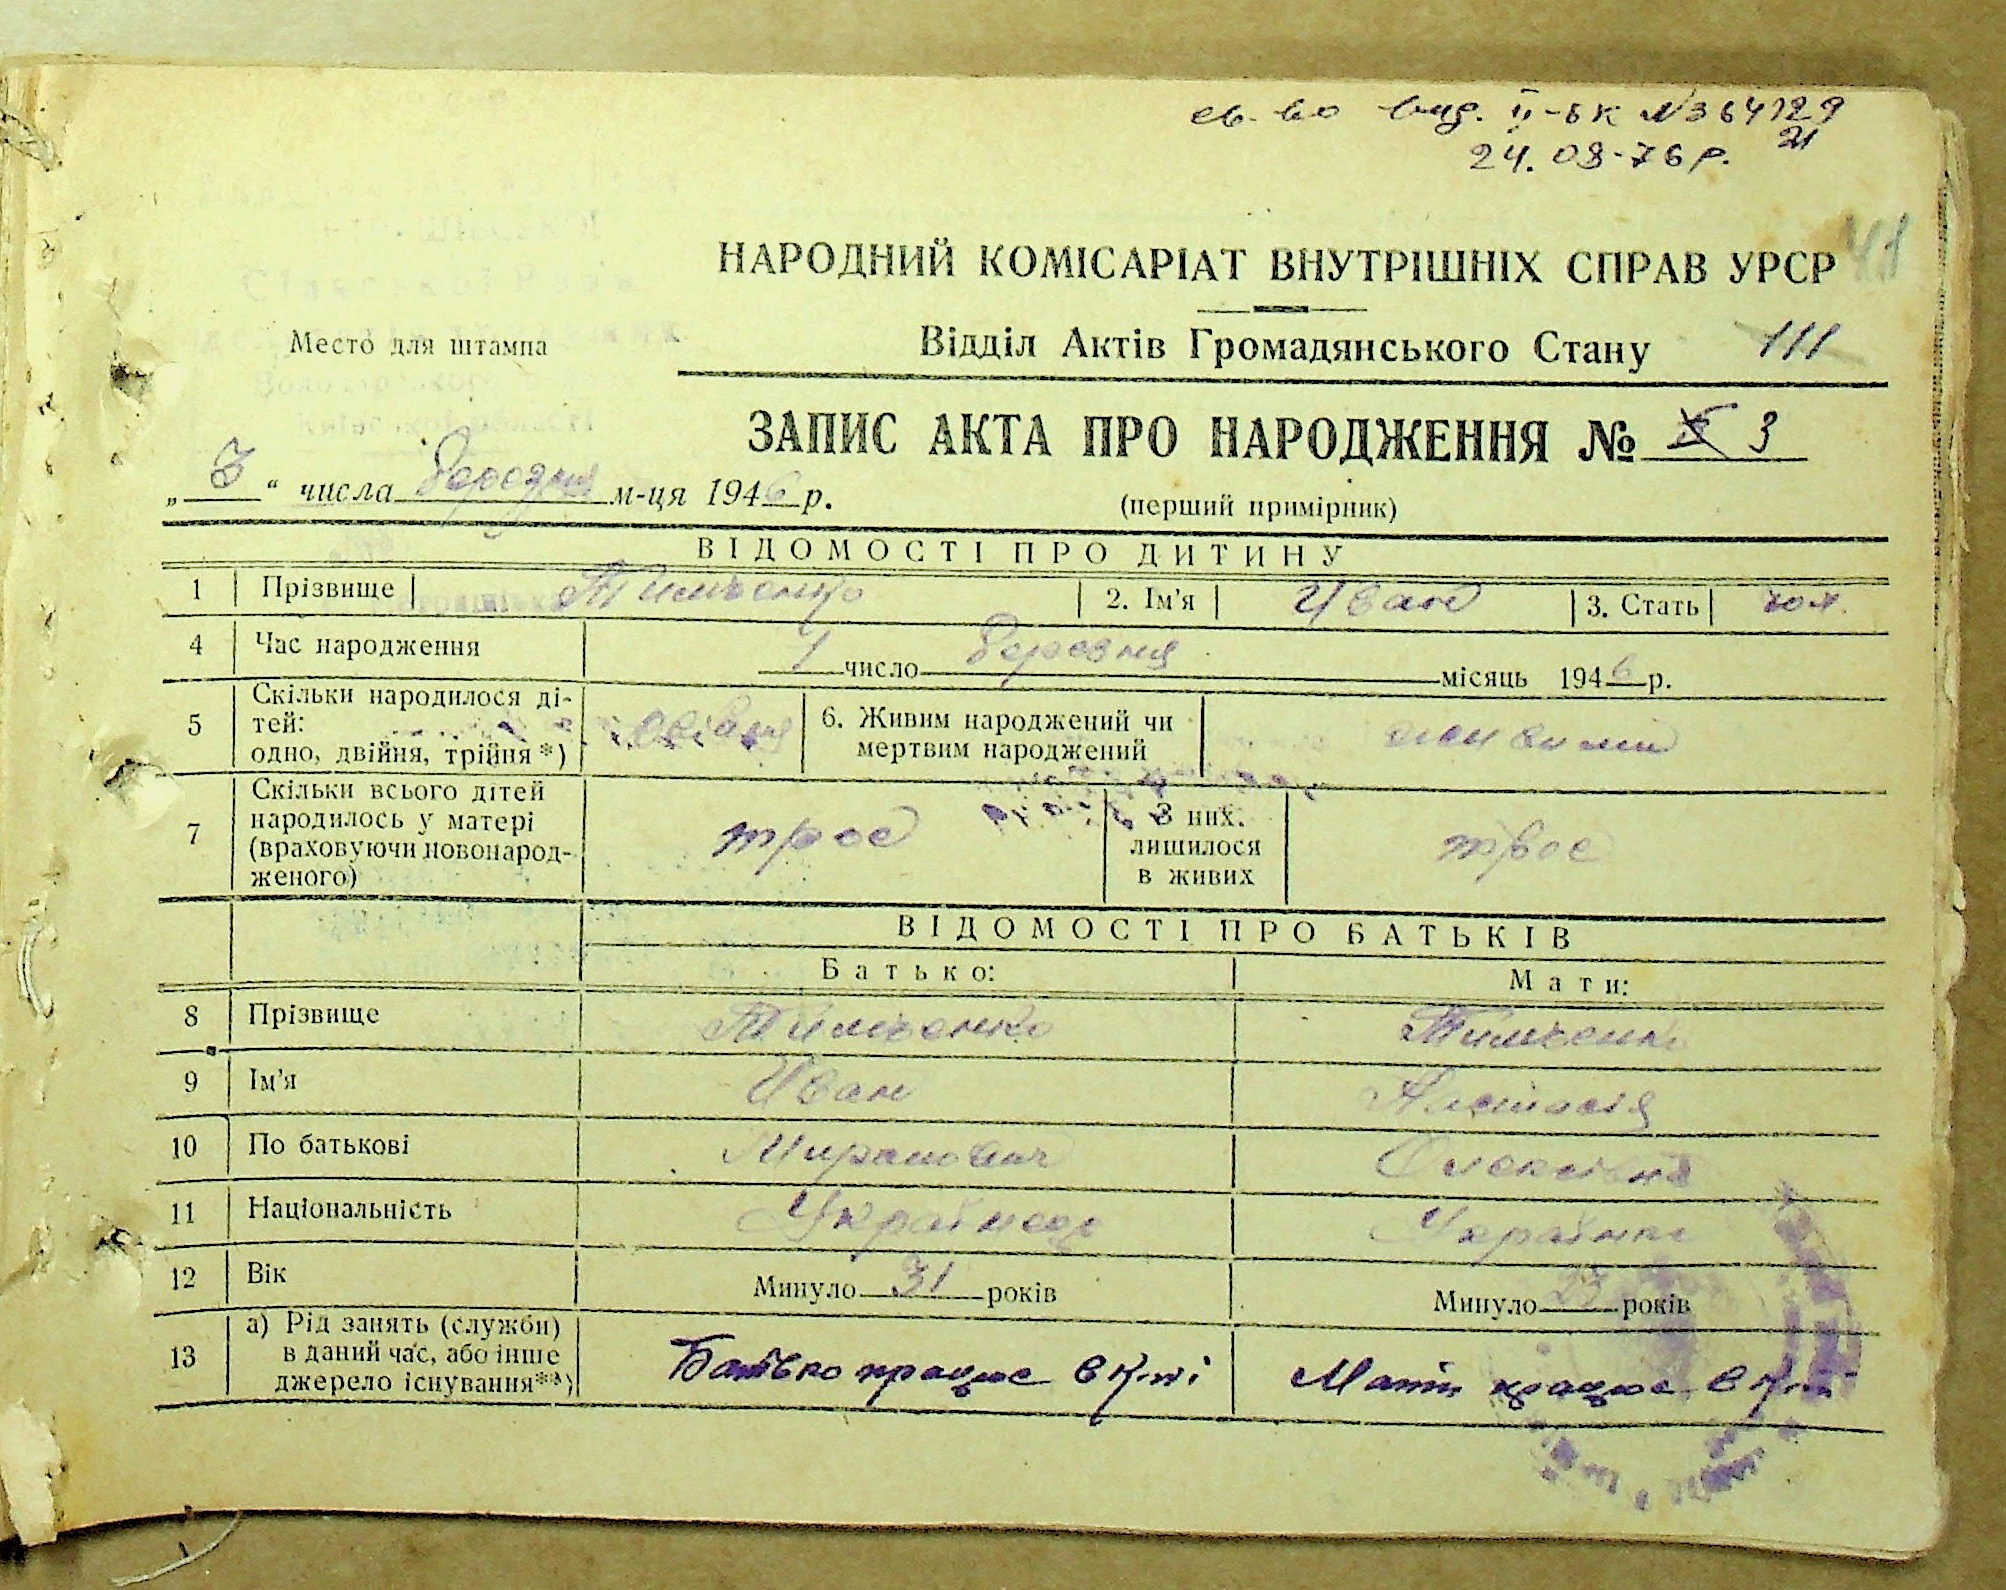 св-во вид. II-БК №364129
24.08-76 р.
21
НАРОДНИЙ КОМІСАРІАТ ВНУТРІШНІХ СПРАВ УРСР 41
Место для штампа
Відділ Актів Громадянського Стану 111
ЗАПИС АКТА ПРО НАРОДЖЕННЯ № 3
„3“ числа березня м-ця 1946 р.
(перший примірник)
ВІДОМОСТІ ПРО ДИТИНУ
1 Прізвище Тимченко 2. Ім'я Иван 3. Стать чол.
4 Час народження 1 число березня місяць 1946 р.
5 Скільки народилося ді-
тей:
одно, двійня, трійня*) двійня 6. Живим народжений чи
мертвим народжений живими
7 Скільки всього дітей
народилось у матері
(враховуючи новонарод-
женого) трое З них.
лишилося
в живих трое
ВІДОМОСТІ ПРО БАТЬКІВ
Батько: Мати:
8 Прізвище Тимченко Тимченко
9 Ім'я Иван Анастасія
10 По батькові Миронович Олексіївна
11 Національність Українець Українка
12 Вік Минуло 31 років Минуло років
13 а) Рід занять (служби)
в даний час, або інше
джерело існування**) Батько працює в Мати працює в